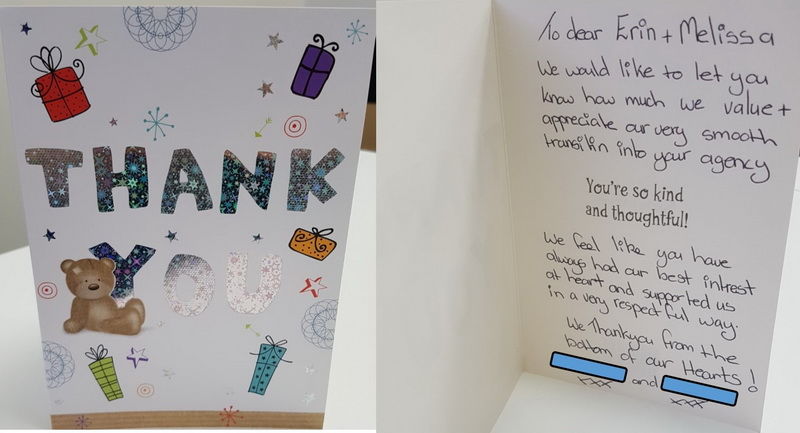 THANK
YOU
To dear Erin + Melissa
We would like to let you
know how much we value +
appreciate our very smooth
transitin into your agency
You're so kind
and thoughtful!
We feel like you have
always had our best intrest
at heart and supported us
in a very respectful way.
We Thankyou from the
bottom of our Hearts!
and
xxx xxx